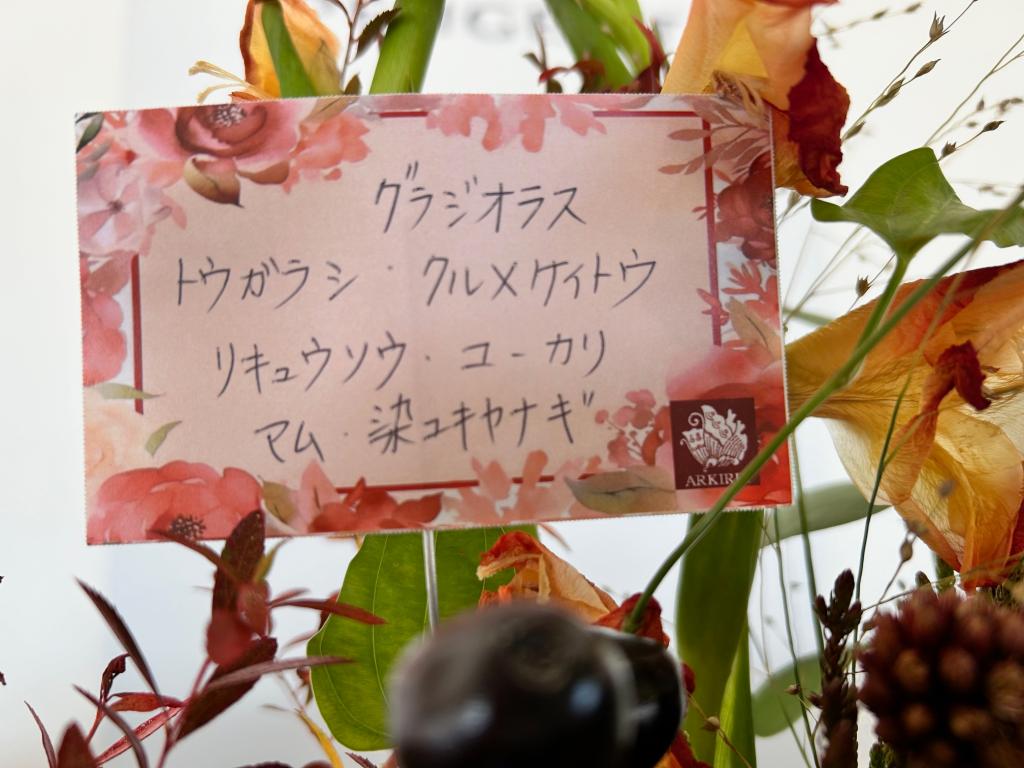 グラジオラス
トウガラシ・クルメケイトウ
リキュウソウ・ユーカリ
アム・染ユキヤナギ